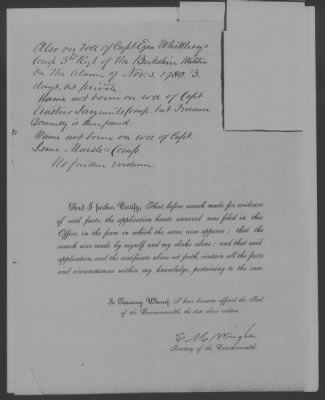 Also on roll of Capt Ezra Whittlesey's
Comp 3rd Regt of the Berkshire Militia
on the alarm of Nov. 3. 1780. 3.
days, as private.
Name not borne on roll of Capt
Erastus Sargents Comp. but
Donnelly is thus found.
Name not borne on roll of Capt.
Isaac Comp.
No further evidence.
And I further Certify, That, before search made for evidence
of said facts, the application hereto annexed was filed in this
Office, in the form in which the same now appears; that the
search was made by myself and my clerks alone; and that said
application, and the certificate above set forth, contain all the facts
and circumstances within my knowledge, pertaining to the case.
In Testimony Whereof, I have hereunto affixed the Seal
of the Commonwealth the date above written.
Secretary of the Commonwealth.